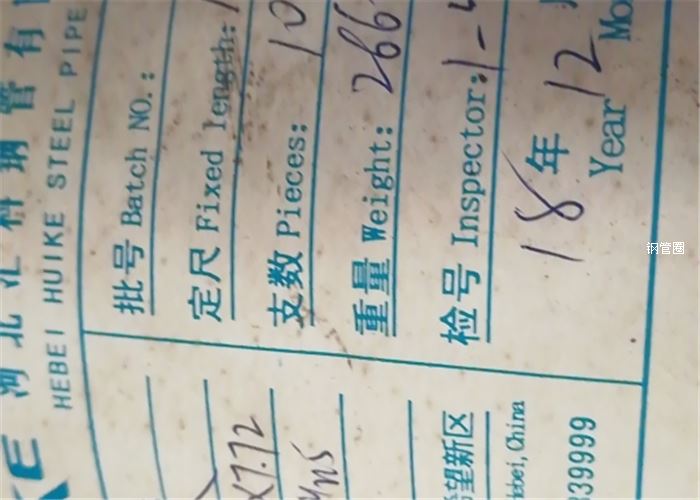 河北汇科钢管有
HEBEI HUIKE STEEL PIPE
批号 Batch NO.:
定尺 Fixed length:
支数 Pieces: 10
重量 Weight: 266
检号 Inspector: 1-4
18年12
Year Mo
X7.72
望新区
China
39999
钢管圈